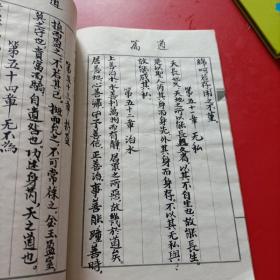 道篇
綿綿若存用之不堇
第五十一章 无私
天長地久天地之所以能長且久者以其不自生也故能長生
是以聖人芮其身而身先外其身而身存不以其无私與
故能成其私
第五十二章 治水
上善治水水善利萬物而有靜居眾之所惡故幾於道矣
居善地心善淵予善信正善治事善能踵善時
道
第五十三章 持盈
揗而盈之不若其已揣而允之不可常葆之金玉盈室
莫之守也貴富而驕自遺咎也功述身芮天之道也
第五十四章 无不為